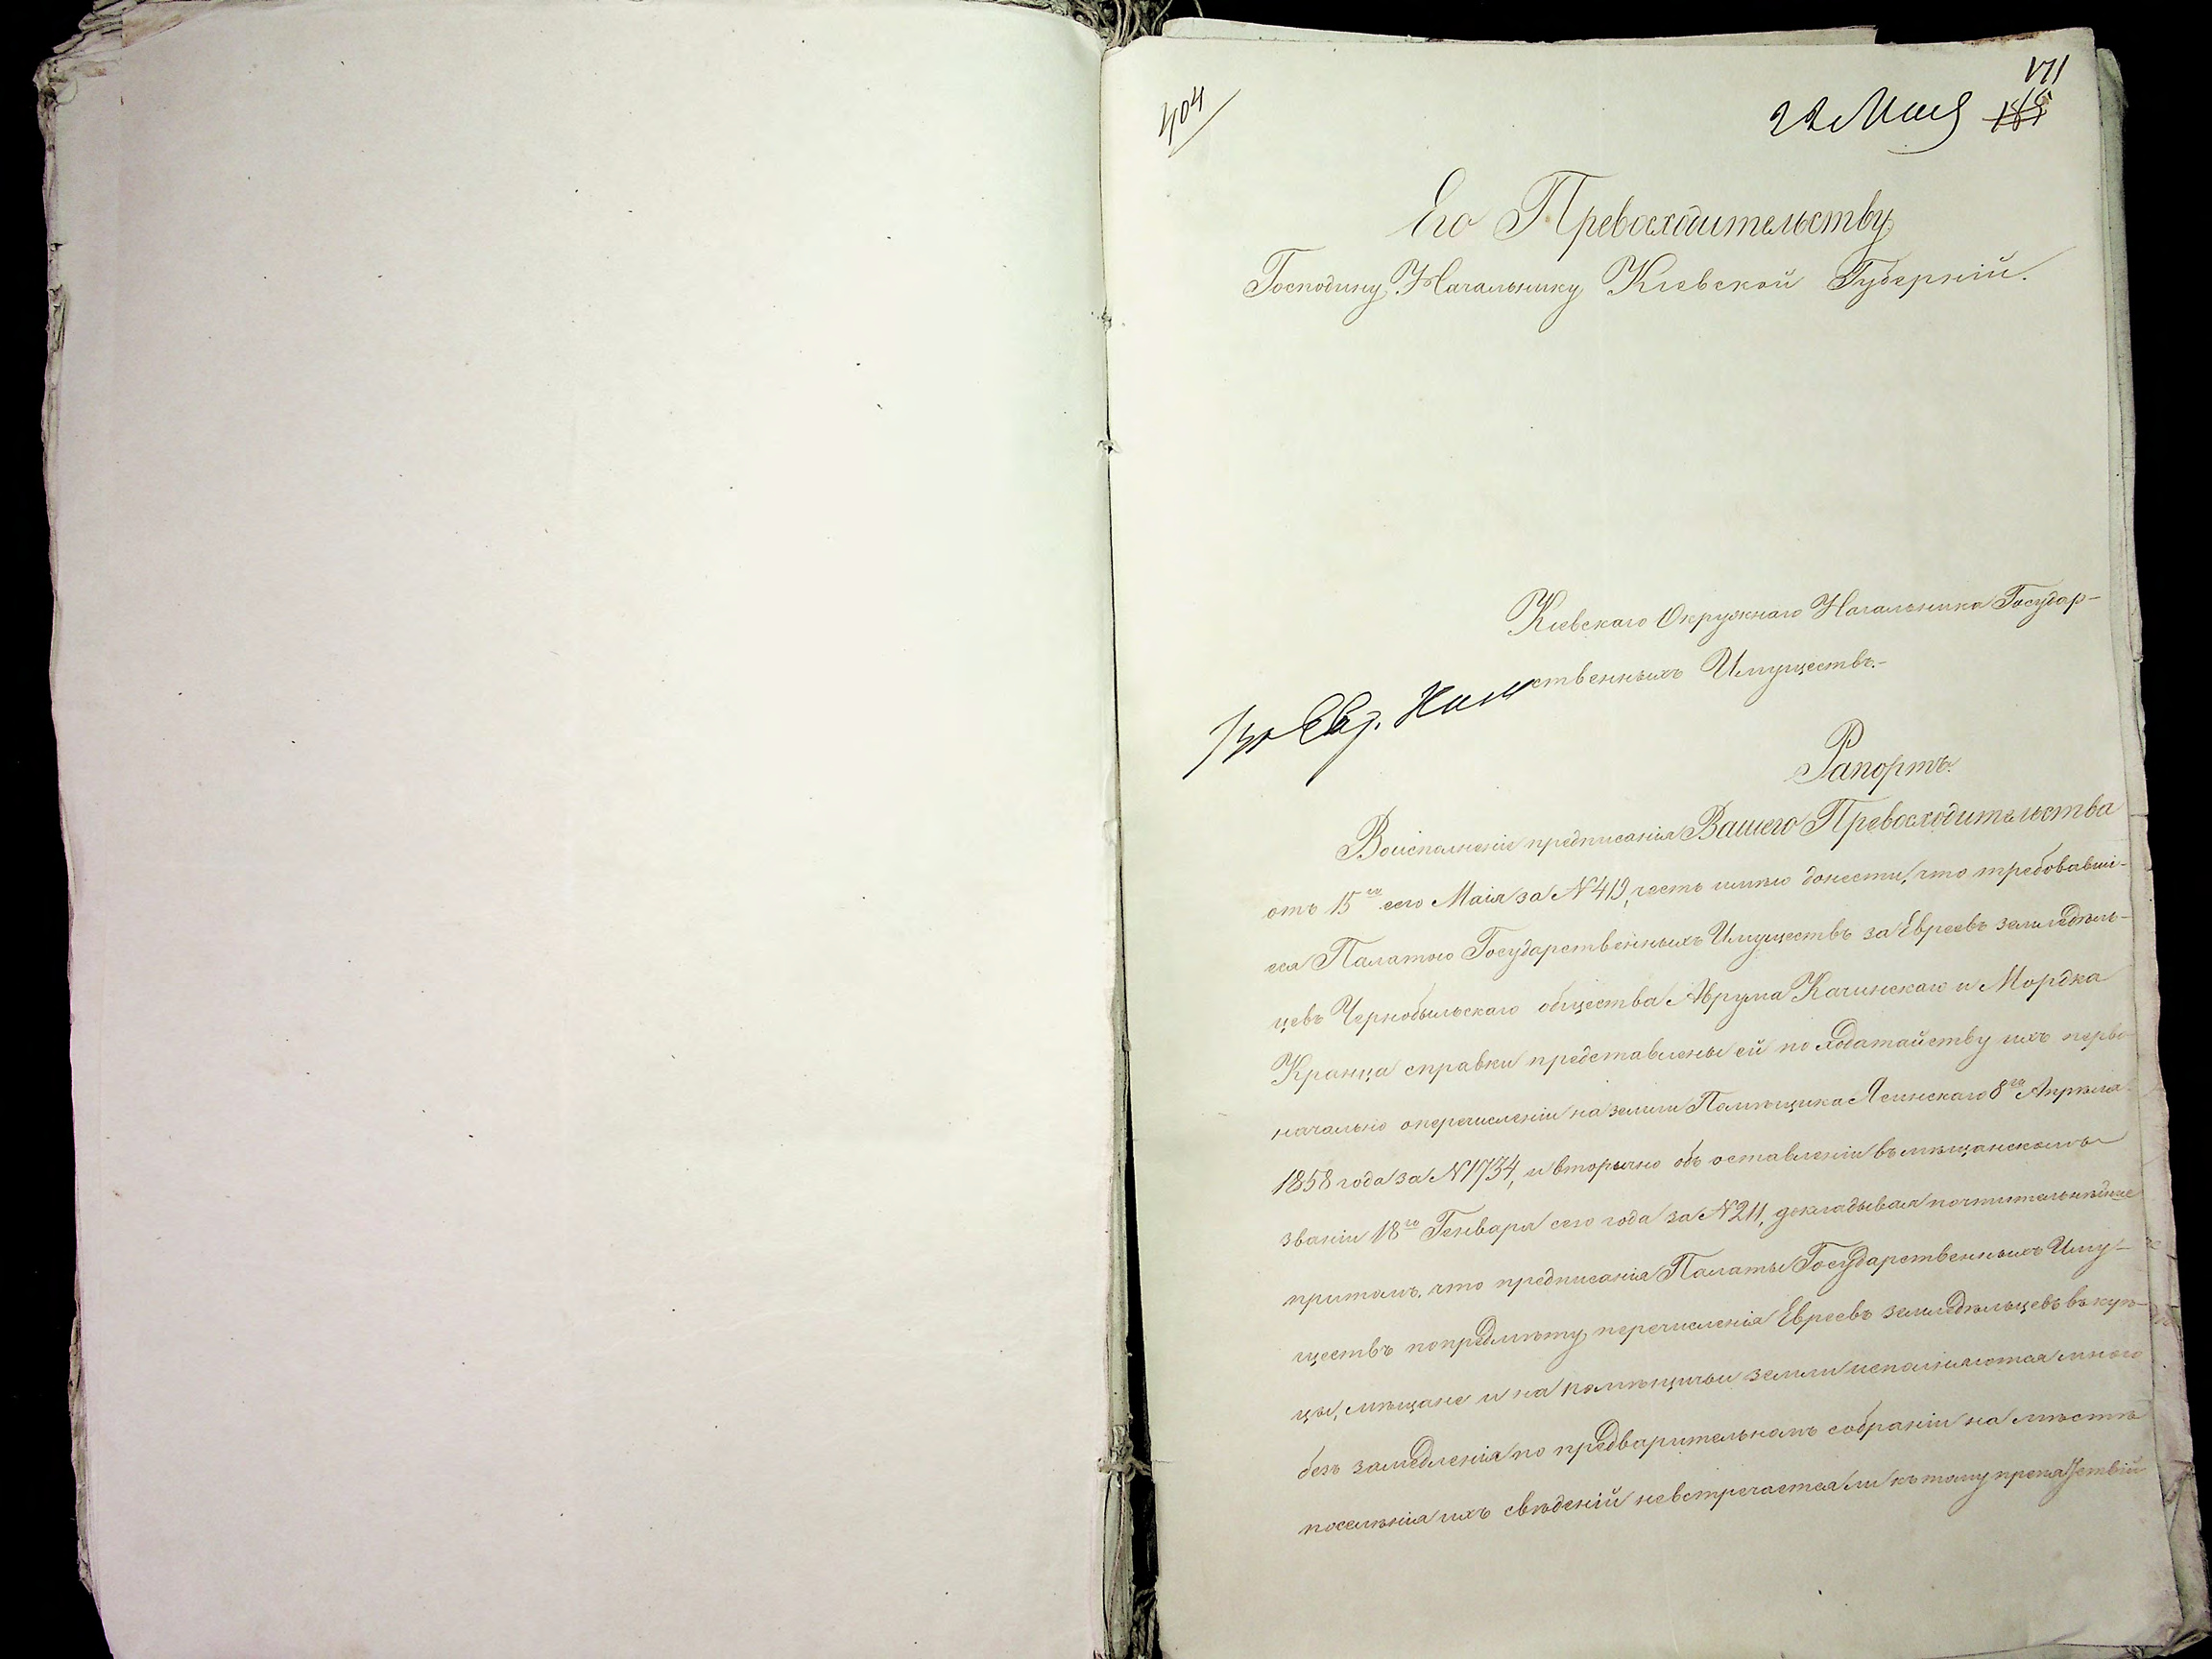 404
171
22 Мая
Его Превосходительству
Господину Начальнику Кіевской Губерніи.
Кіевскаго Окружнаго Начальника Государ-
ственныхъ Имуществъ.-
Рапортъ.
Воисполненіе предписанія Вашего Превосходительства
отъ 15го сего Маія за № 419, честь имѣю донести, что требовавші-
еся Палатою Государственныхъ Имуществъ за Евреевъ земледѣль-
цевъ Чернобыльскаго общества Аврума Качинскаго и Мордка
Кранца справки представлены ей по ходатайству ихъ перво
начально о перечисленіи на земли Помѣщика Ясинскаго 8го Апрѣля
1858 года за № 1734, и вторично объ оставленіи въ мѣщанскомъ
званіи 18го Генваря сего года за № 211, докладывая почтительнѣйше
притомъ, что предписанія Палаты Государственныхъ Иму-
ществъ по предмѣту перечисленія Евреевъ земледѣльцевъ въ куп-
цы, мѣщане и на помѣщичьи земли исполняются мною
безъ замедленія по предварительномъ собраніи на мѣстѣ
поселѣнія ихъ свѣденій невстречается ли къ тому препятствій